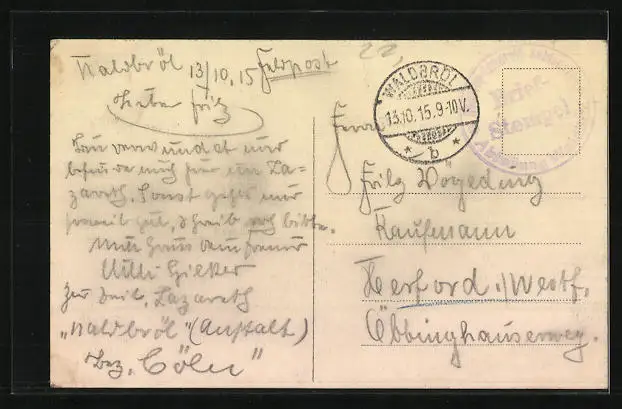 Waldbröl 13/10.15 Feldpost
Lieber Fritz
Bin verwundet und
befinde mich hier im La-
zareth. Sonst gehts mir
soweit gut, schreib mal bitte.
Mit Gruss Dein Freund
Willi
zur Zeit. Lazareth
„Waldbröl" (Anstalt)
Bez. „Cöln"
WALDBRÖL
13.10.15.9-10V.
* b *
Brief-
Stempel
Herrn
Fritz Wögeding
Kaufmann
Herford i/Westf.
Ebbinghauserweg.